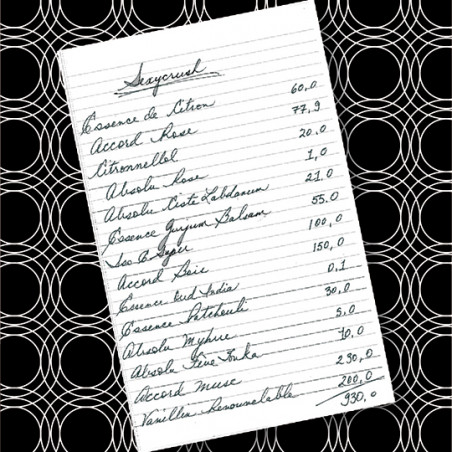 Sexycrush
Essence de Citron 60,0
Accord Rose 77,9
Citronnellol 20,0
Absolu Rose 1,0
Absolu Ciste Labdanum 21,0
Essence Gurjum Balsam 55,0
Iso E Super 100,0
Accord Bois 150,0
Essence Oud India 0,1
Essence Patchouli 30,0
Absolu Myhrre 5,0
Absolu Fève Tonka 10,0
Accord Musc 230,0
Vanillin Renouvelable 200,0
930,0